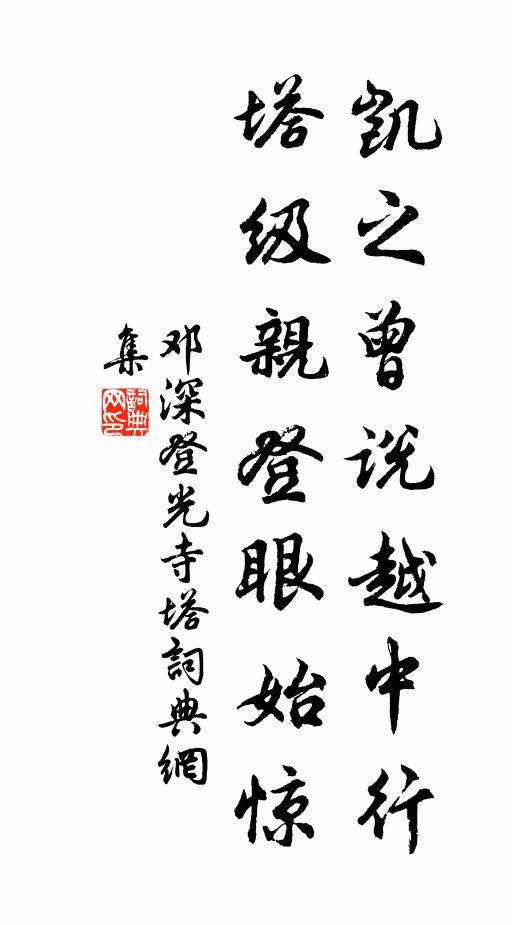 凯之曾说越中行
塔级親登眼始惊
邓深登光寺塔詞典網
集
詞典網印